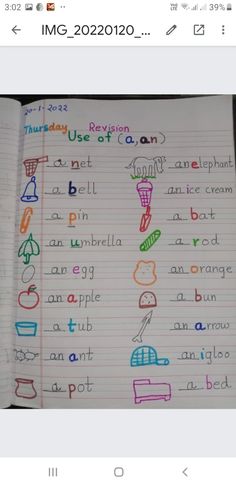 3:02
39%
IMG_20220120_...
20-1-2022
Thursday Revision
Use of (a, an)
a net
an elephant
a bell
an ice cream
a pin
a bat
an umbrella
a rod
an egg
an orange
an apple
a bun
a tub
an arrow
an ant
an igloo
a pot
a bed